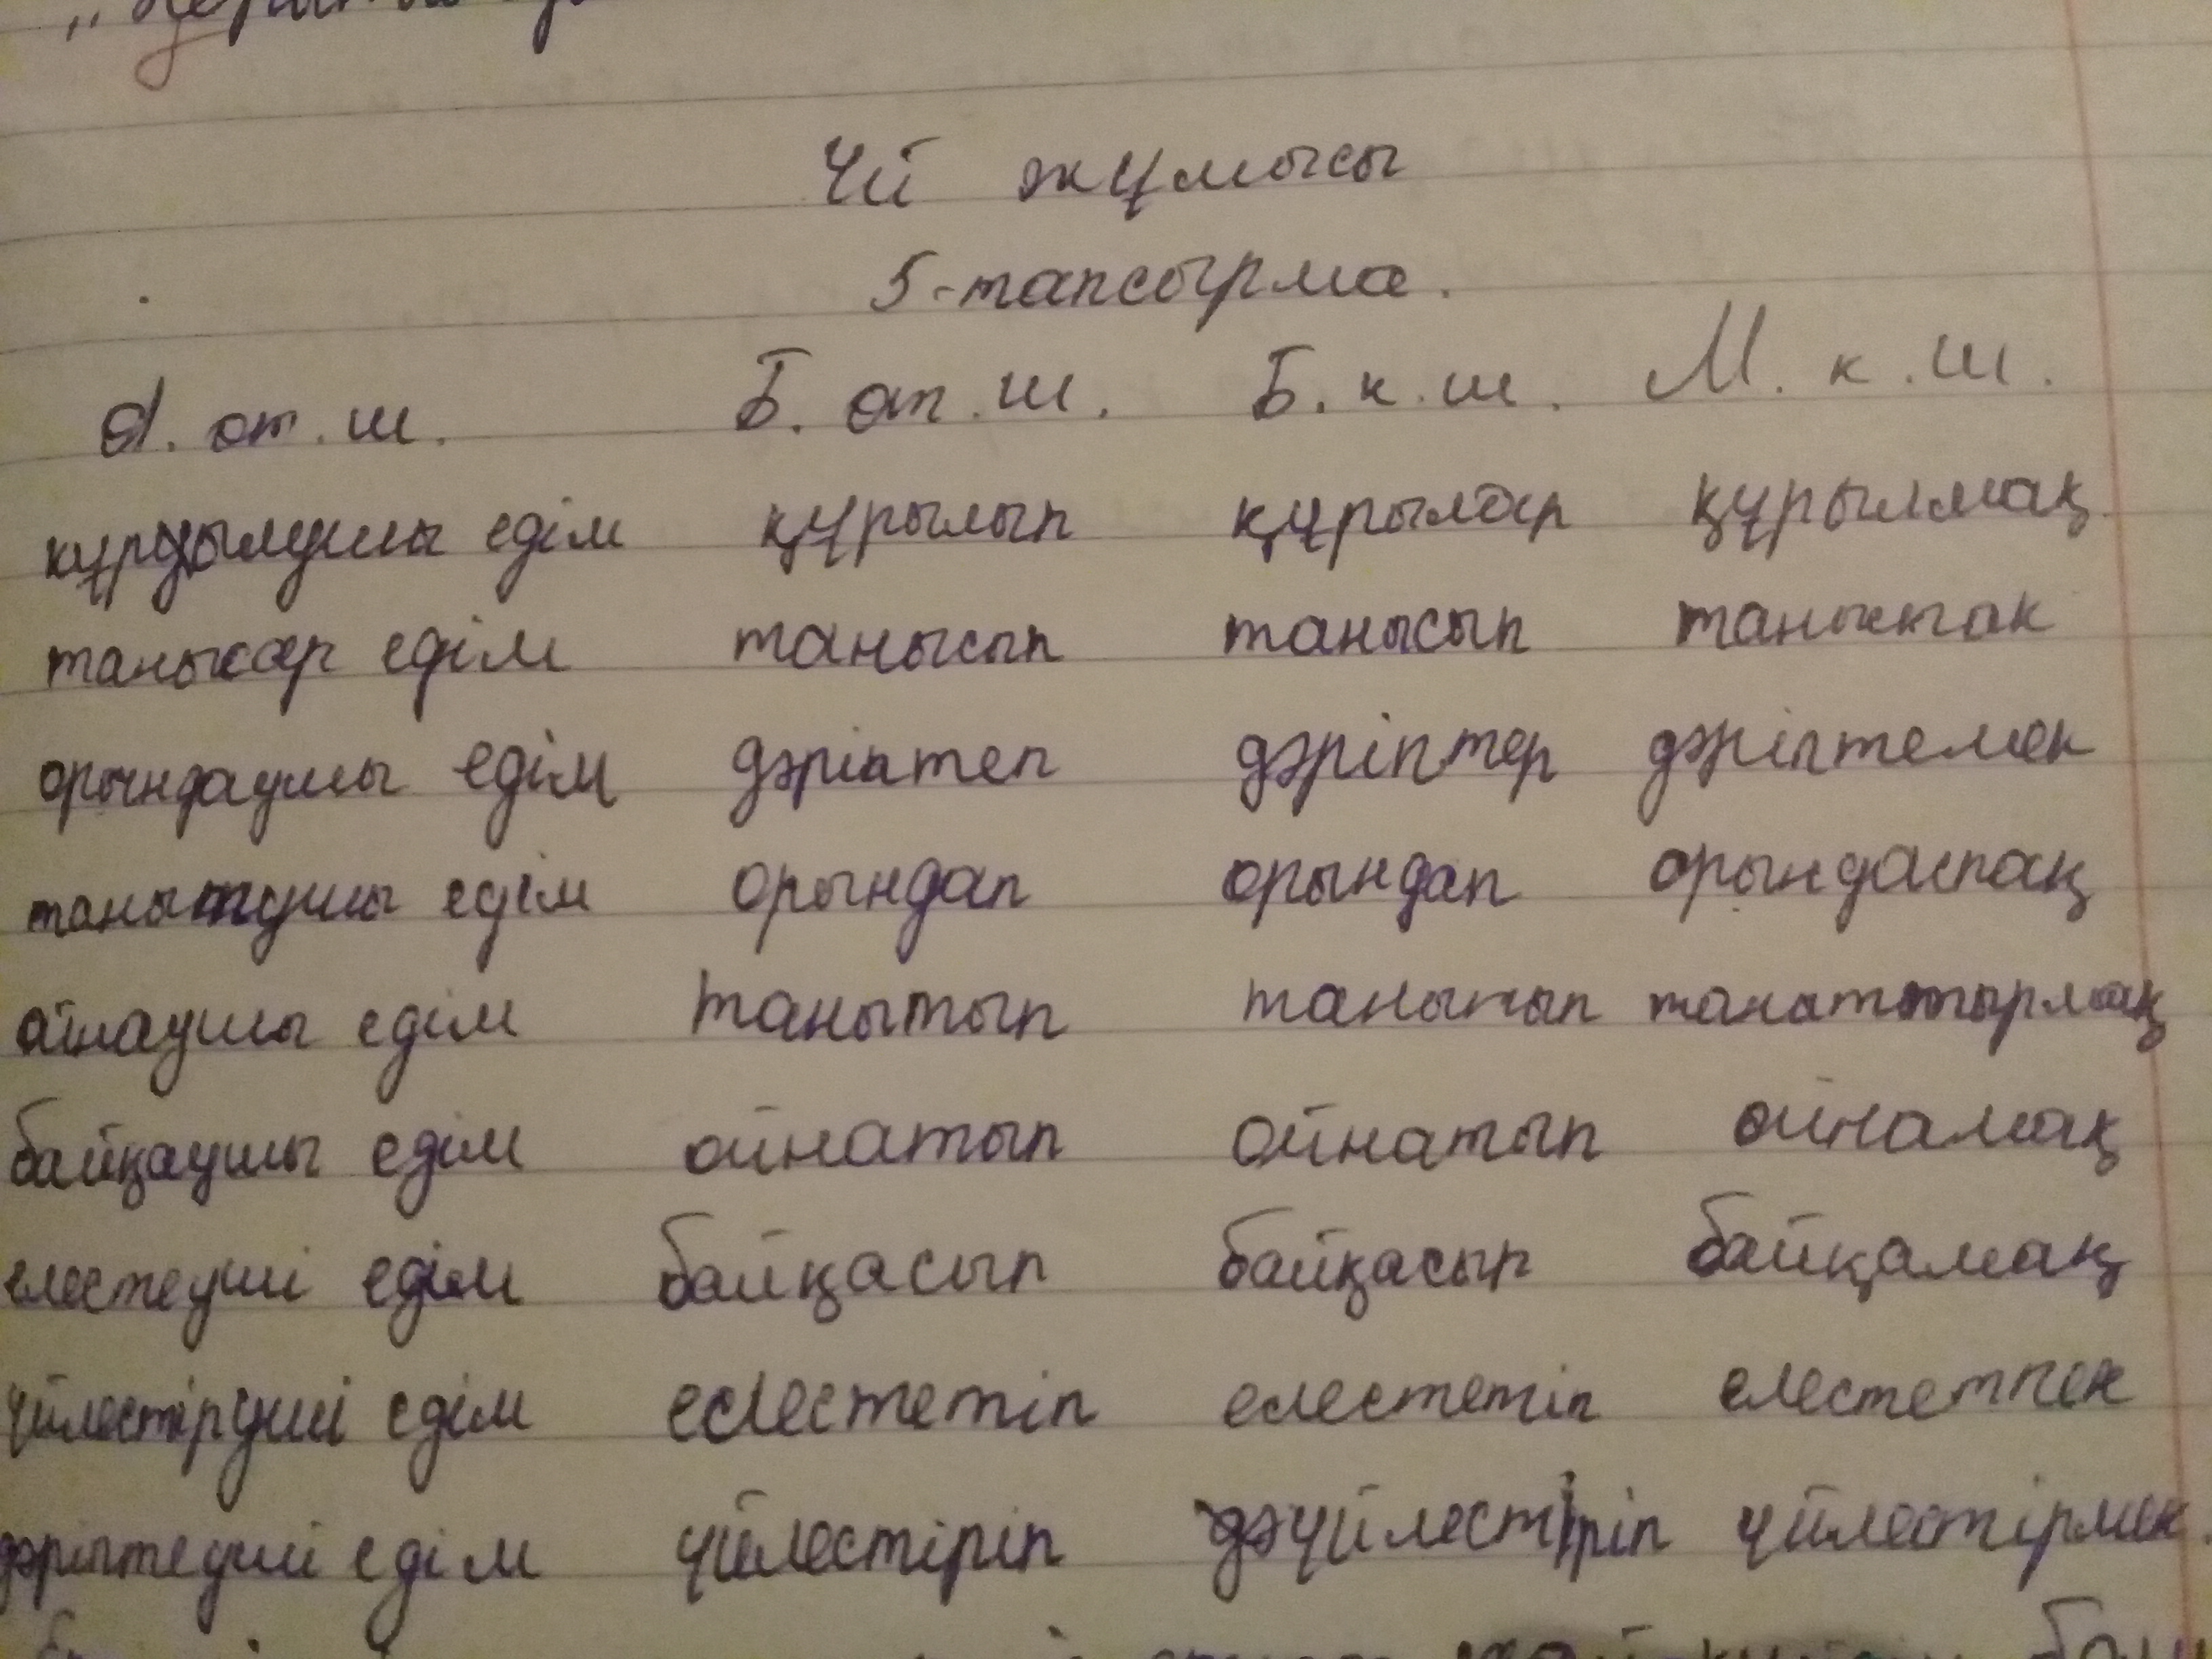 Үй жұмысы
5-тапсырма.
А. от. ш. Б. от. ш. Б. к. ш. М. к. ш.
құрылушы едім құрылып құрылар құрылмақ
танысар едім танысып танысып таныспак
орындаушы едім дәріптеп дәріптер дәріптемек
танытушы едім орындап орындап орындаспақ
ойнаушы едім танытып танытып танаттырмақ
байқаушы едім ойнатып ойнатып ойнамақ
елестеуші едім байқасып байқасып байқамақ
үйлестіруші едім еслестетіп елестетіп елестетпек
дәріптеуші едім үйлестіріп үйлестіріп үйлестірмек